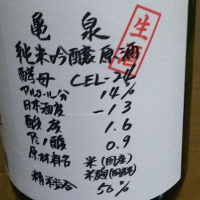 亀泉
生酒
純米吟醸原酒
酵母 CEL-24
アルコール分 14%
日本酒度 -13
酸度 1.6
アミノ酸 0.9
原材料名 米(国産)
米麹(国産米)
精米歩合 50%